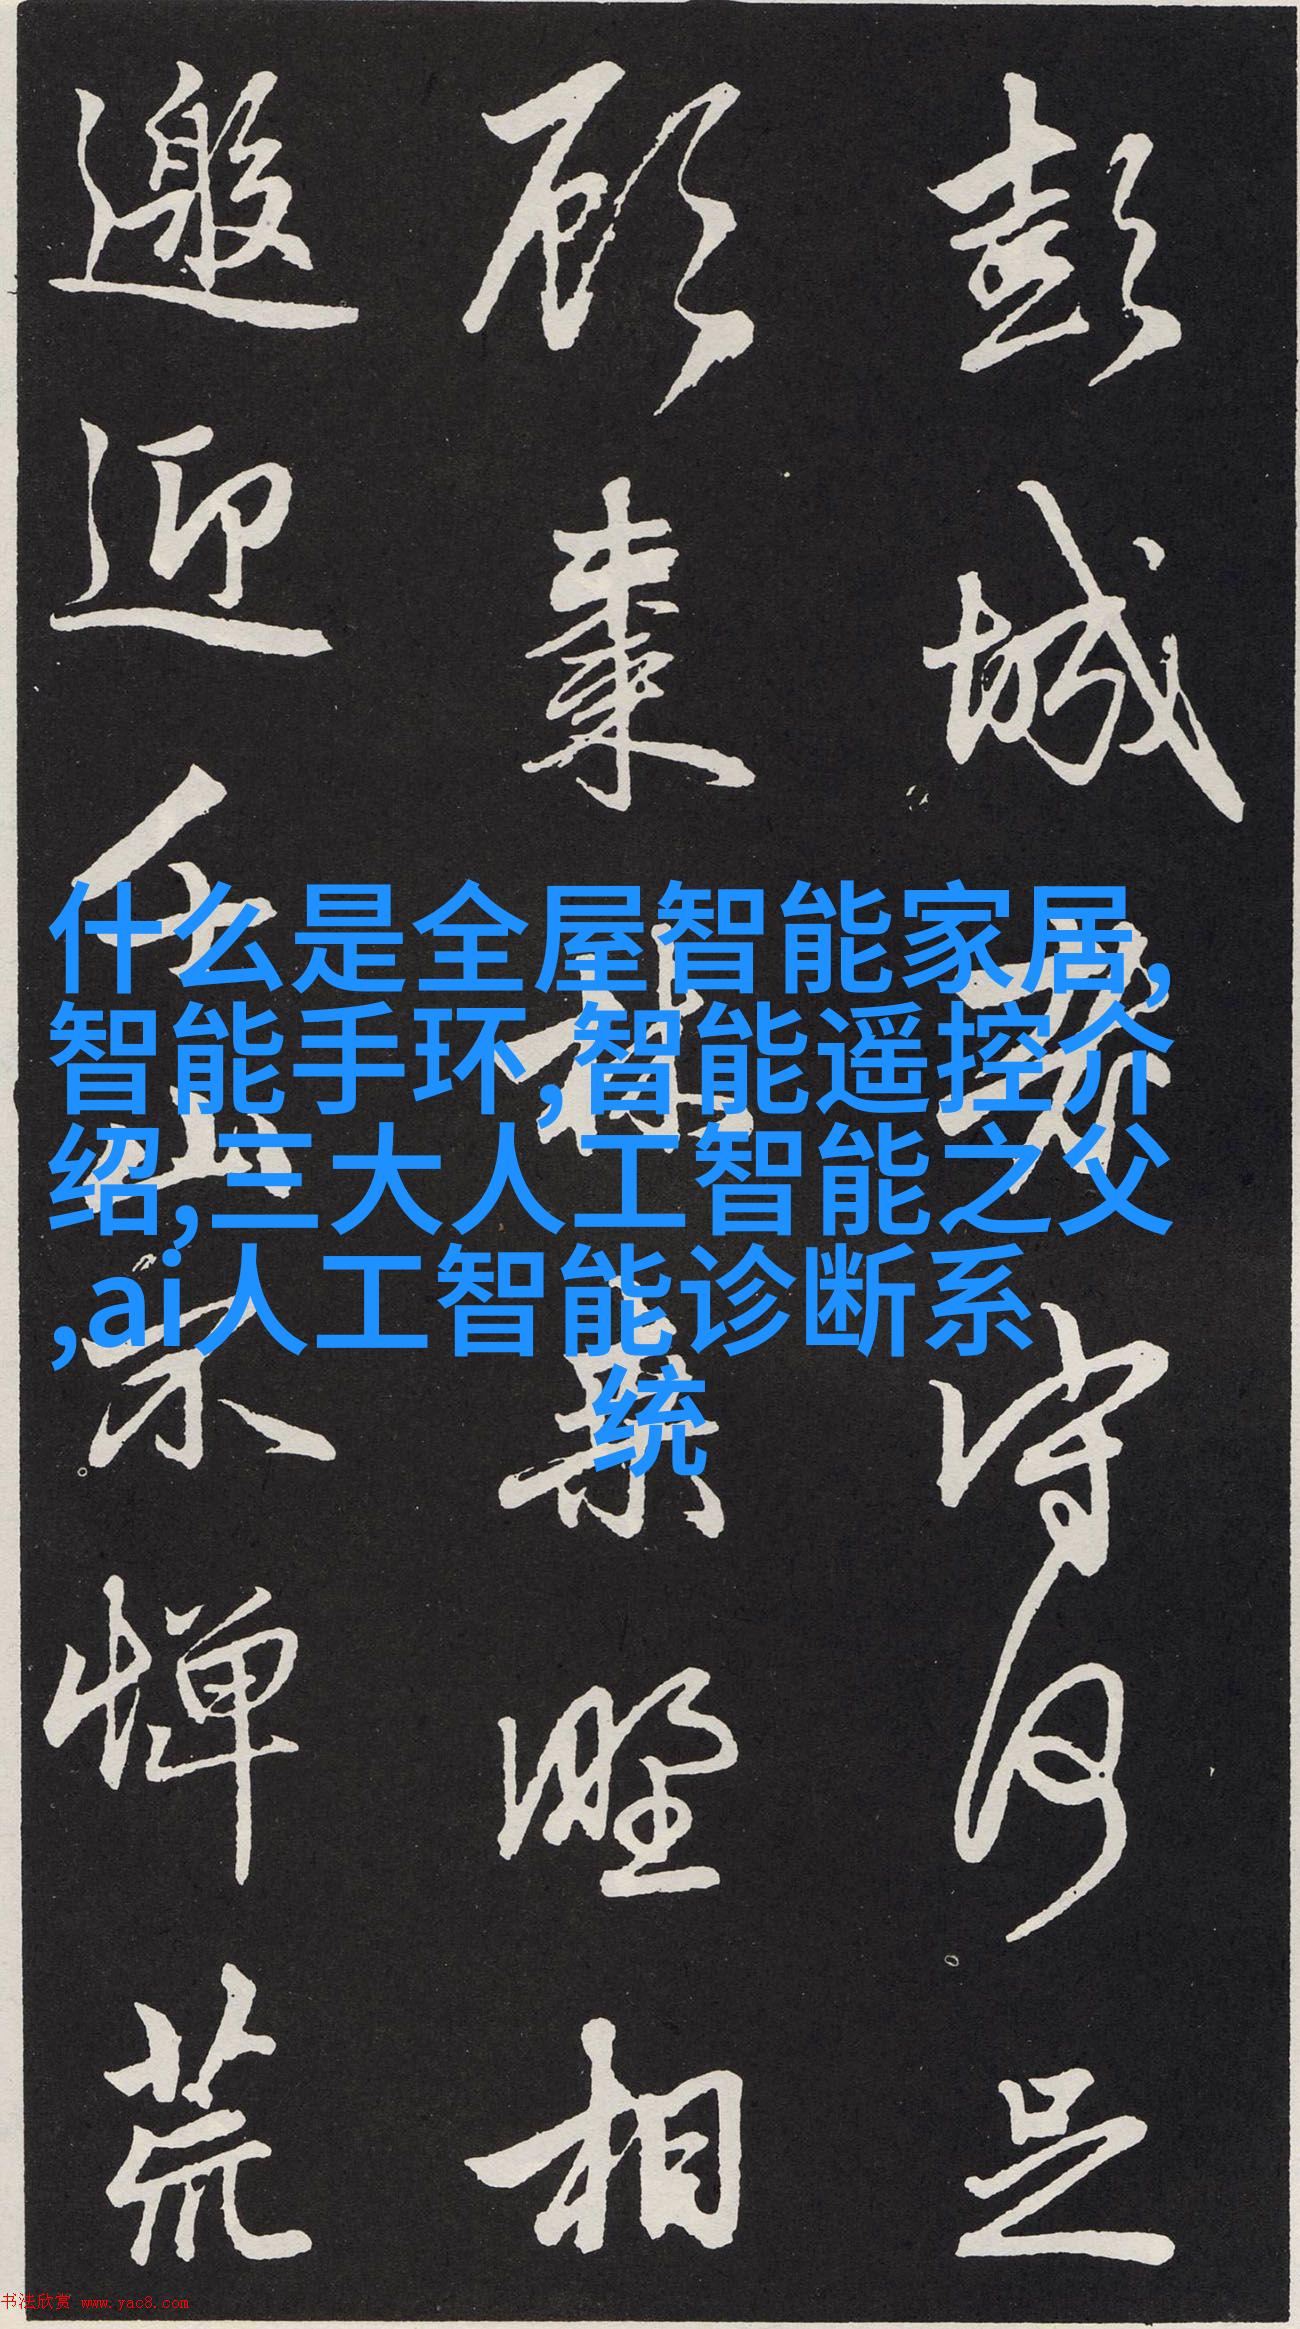 彭城老守何足
顧棗林桑野相
邀迎千山不憚荒
什么是全屋智能家居,
智能手环,智能遥控介
绍,三大人工智能之父
,ai人工智能诊断系
统
书法欣赏 www.yac8.com